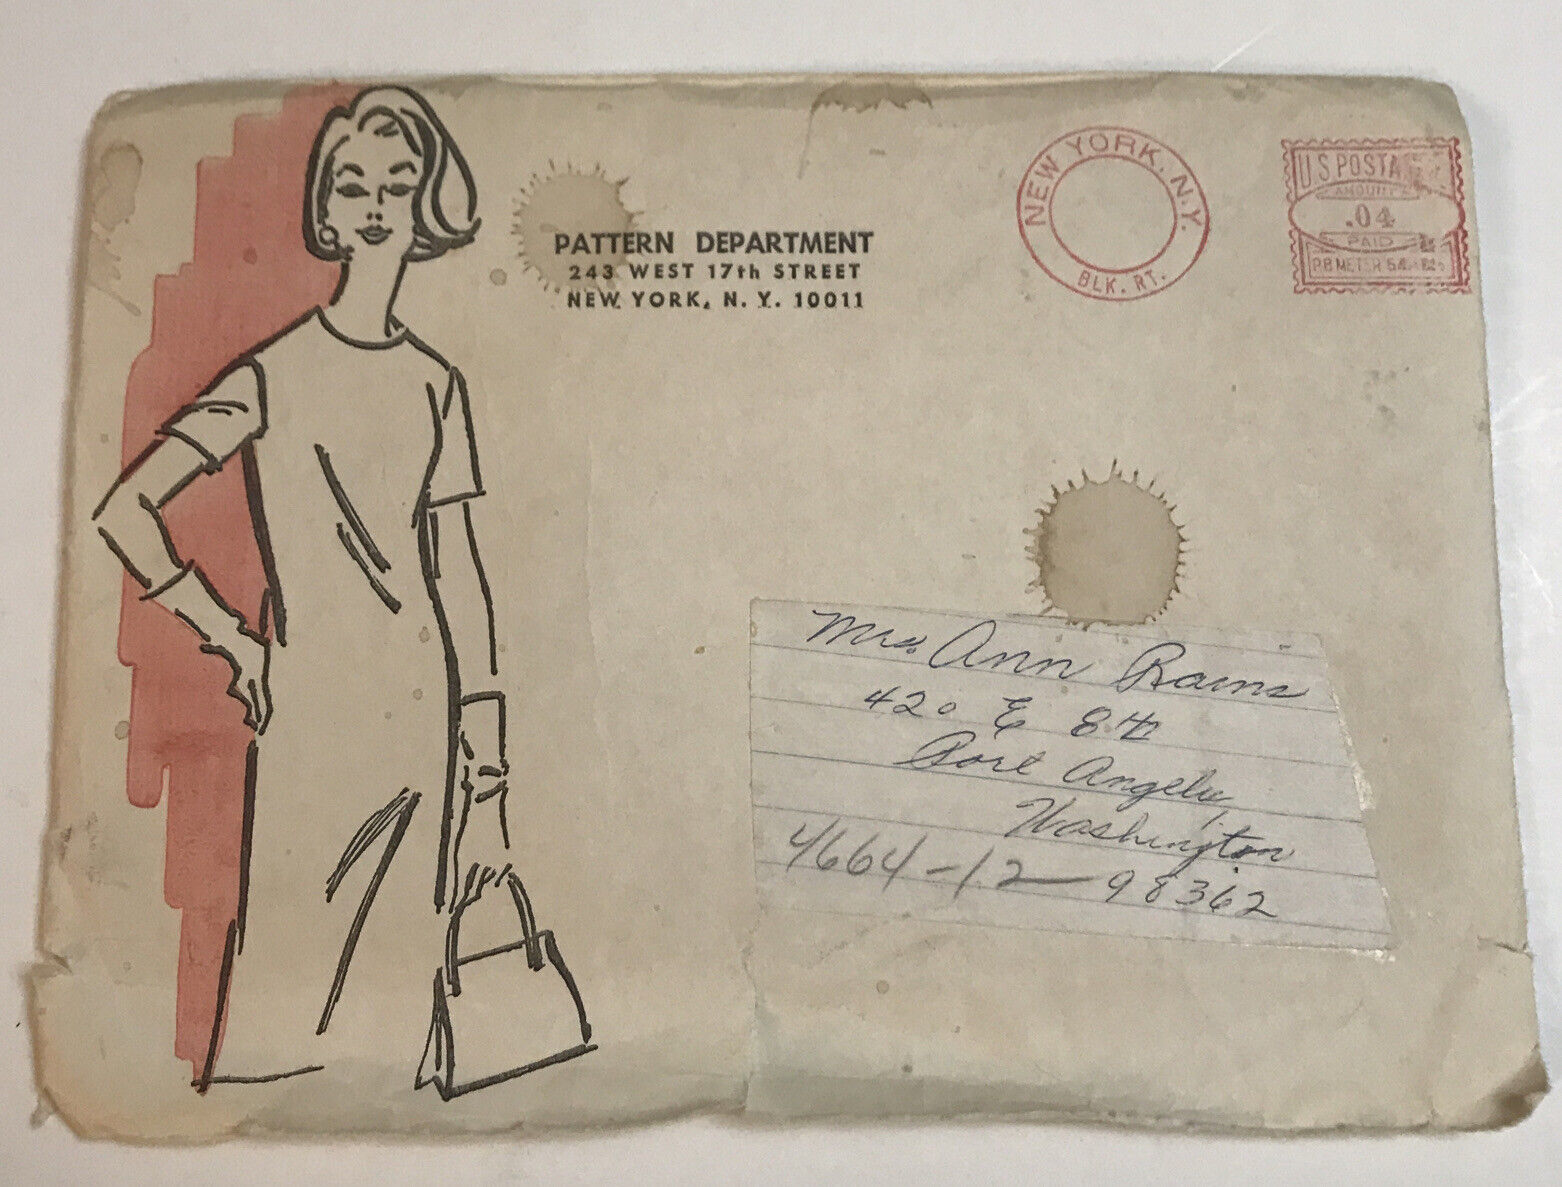 PATTERN DEPARTMENT
243 WEST 17th STREET
NEW YORK, N. Y. 10011
NEW YORK, N.Y.
BLK. RT.
U.S. POSTA
AMOUNT
.04
PAID
P.B. METER
Mrs. Ann Rains
420 E 8th
Port Angeles,
Washington
4664-12 98362